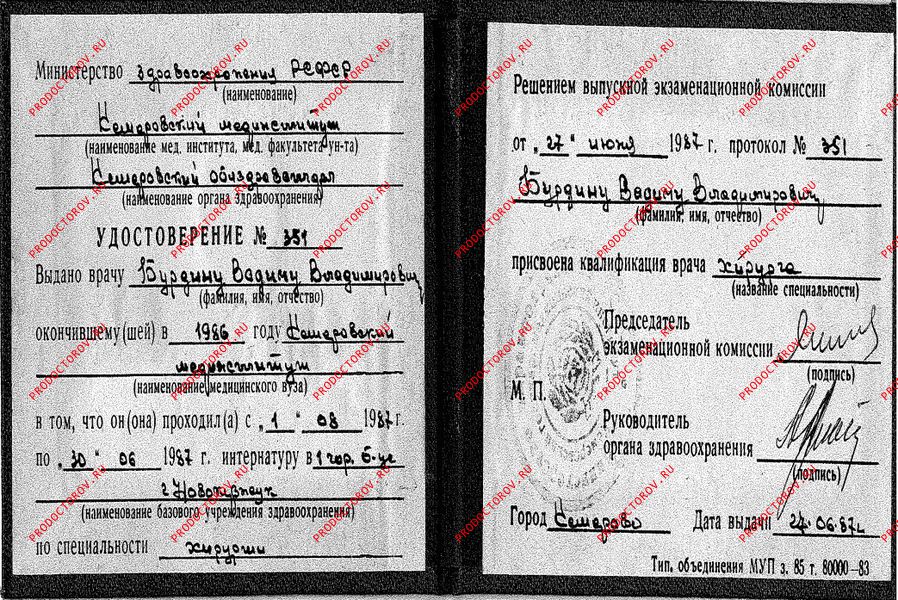 Министерство здравоохранения РСФСР
(наименование)
Кемеровский мединститут
(наименование мед. института, мед. факультета ун-та)
Кемеровский облздравотдел
(наименование органа здравоохранения)
УДОСТОВЕРЕНИЕ № 351
Выдано врачу Бурдину Вадиму Владимирович
(фамилия, имя, отчество)
окончившему(шей) в 1986 году Кемеровский
мединститут
(наименование медицинского вуза)
в том, что он(она) проходил(а) с „1" 08 1987 г.
по „30" 06 1987 г. интернатуру в 1 гор. б-це
г. Новокузнецк
(наименование базового учреждения здравоохранения)
по специальности хирургии
Решением выпускной экзаменационной комиссии
от „27" июня 1987 г. протокол № 351
Бурдину Вадиму Владимирович
(фамилия, имя, отчество)
присвоена квалификация врача хирурга
(название специальности)
Председатель
экзаменационной комиссии
(подпись)
М. П.
Руководитель
органа здравоохранения
(подпись)
Город Кемерово Дата выдачи 27.06.87г.
Тип. объединения МУП з. 85 т. 80000—83
PRODOCTOROV.RU